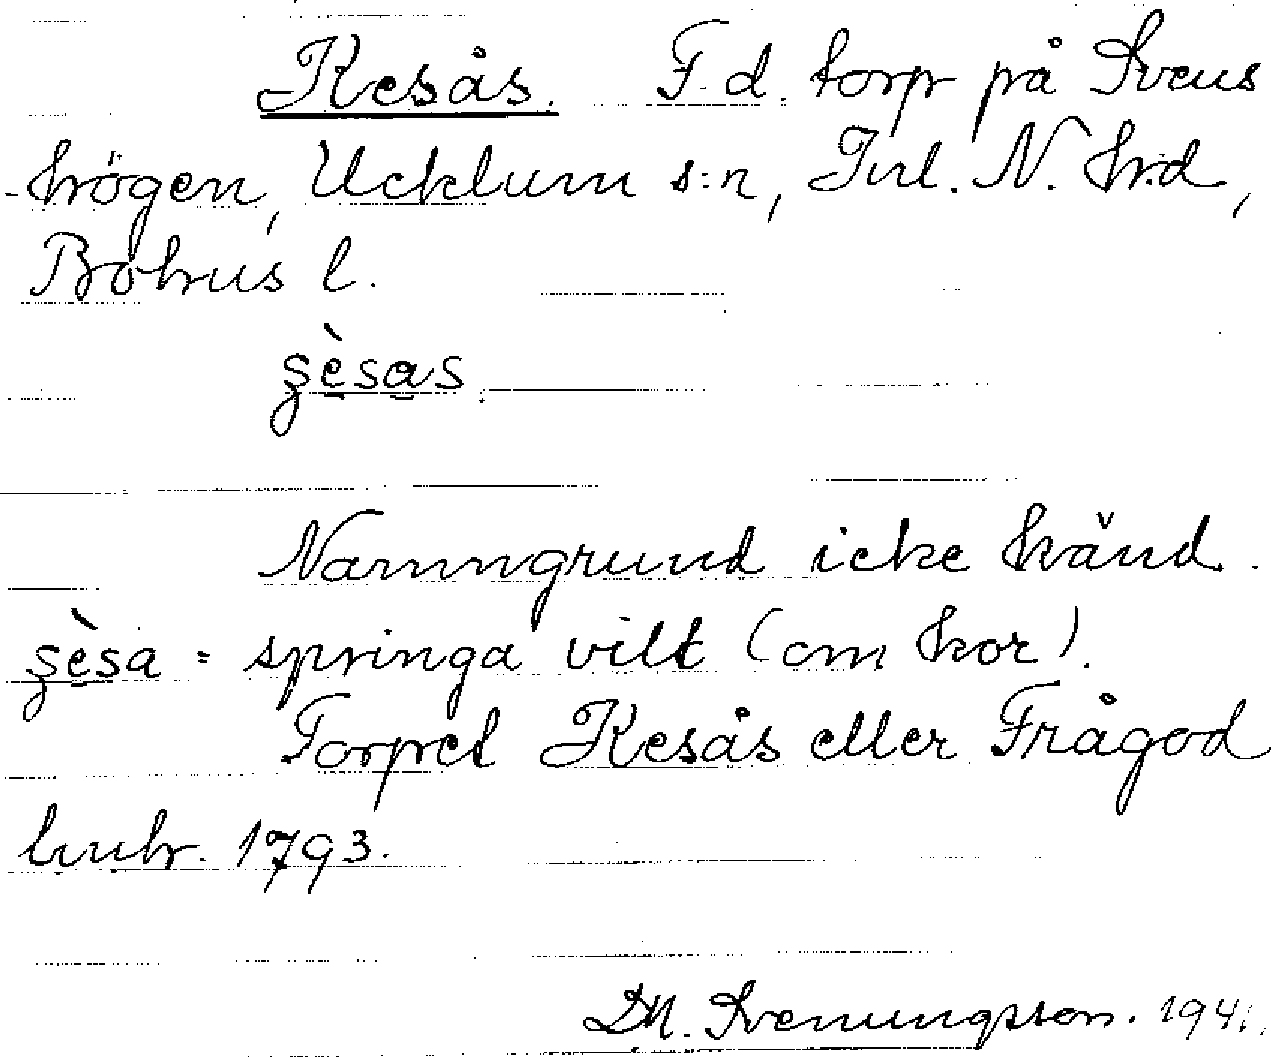 Kesås. F. d. torp på Svens
-högen, Ucklum s:n, Inl. N. hrd,
Bohus l.
ʂèsas
Namngrund icke känd.
ʂèsa = springa vilt (om kor).
Torpet Kesås eller Frågod
huhr. 1793.
M. Svenungsson. 194